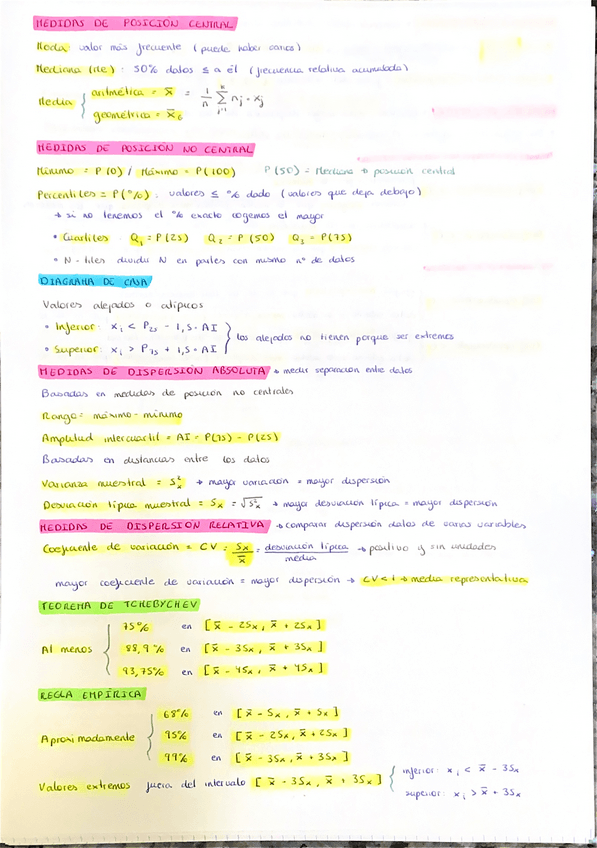 MEDIDAS DE POSICIÓN CENTRAL
Moda: valor más frecuente (puede haber varios)
Mediana (Me): 50% datos ≤ a él (frecuencia relativa acumulada)
Media { aritmética = x̄ = 1/n Σ nj · xj
geométrica = x̄G
MEDIDAS DE POSICION NO CENTRAL
Mínimo = P(0) / Máximo = P(100) P(50) = Mediana → posición central
Percentiles = P(%) : valores ≤ % dado (valores que deja debajo)
→ si no tenemos el % exacto cogemos el mayor
• Cuartiles: Q1 = P(25) Q2 = P(50) Q3 = P(75)
• N-tiles dividir N en partes con mismo nº de datos
DIAGRAMA DE CAJA
Valores alejados o atípicos
• Inferior: xi < P25 - 1,5·AI } los alejados no tienen porque ser extremos
• Superior: xi > P75 + 1,5·AI
MEDIDAS DE DISPERSIÓN ABSOLUTA → medir separación entre datos
Basadas en medidas de posición no centrales
Rango = máximo - mínimo
Amplitud intercuartil = AI = P(75) - P(25)
Basadas en distancias entre los datos
Varianza muestral = Sx² → mayor variación = mayor dispersión
Desviación típica muestral = Sx = √Sx² → mayor desviación típica = mayor dispersión
MEDIDAS DE DISPERSION RELATIVA → comparar dispersión datos de varias variables
Coeficiente de variación = CV = Sx/x̄ = desviación típica/media → positivo y sin unidades
mayor coeficiente de variación = mayor dispersión → CV<1 → media representativa
TEOREMA DE TCHEBYCHEV
75% en [x̄ - 2Sx, x̄ + 2Sx]
Al menos { 88,9% en [x̄ - 3Sx, x̄ + 3Sx]
93,75% en [x̄ - 4Sx, x̄ + 4Sx]
REGLA EMPÍRICA
68% en [x̄ - Sx, x̄ + Sx]
Aproximadamente { 95% en [x̄ - 2Sx, x̄ + 2Sx]
99% en [x̄ - 3Sx, x̄ + 3Sx]
Valores extremos fuera del intervalo [x̄ - 3Sx, x̄ + 3Sx] { inferior: xi < x̄ - 3Sx
superior: xi > x̄ + 3Sx